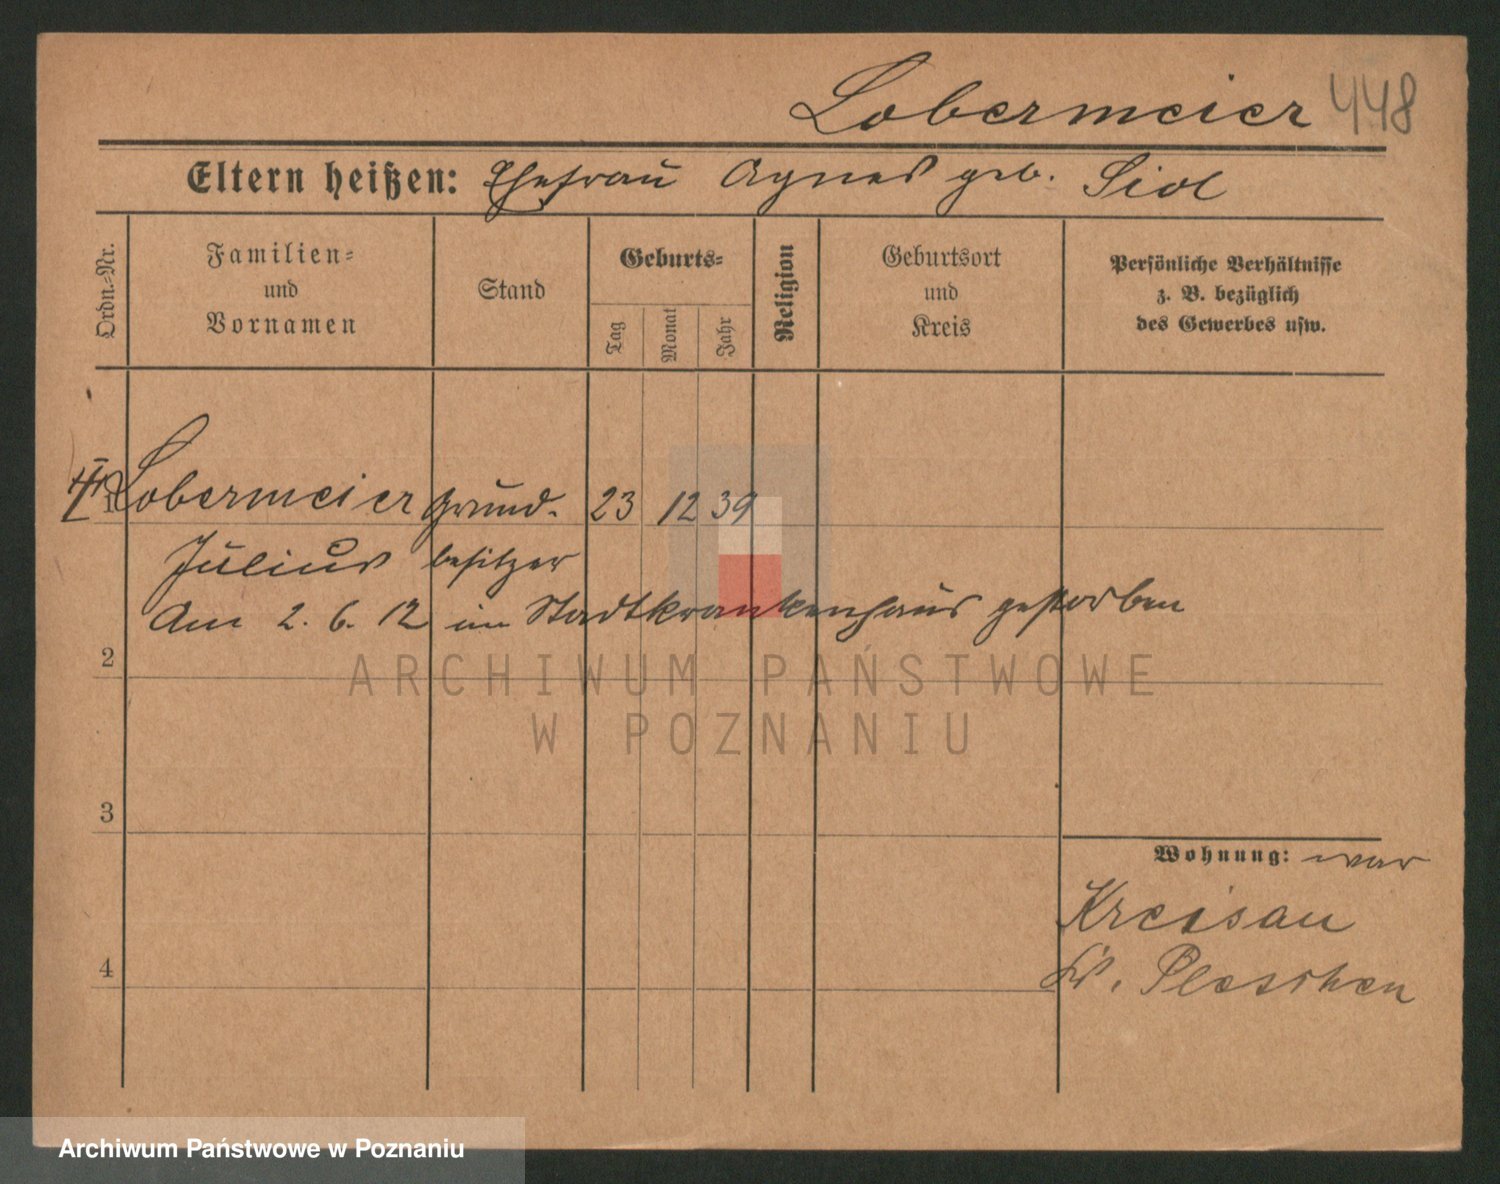 Lobermeier 448
Eltern heißen: Ehefrau Agnes geb.
Ordn.-Nr.
Familien-
und
Vornamen
Stand
Geburts-
Tag
Monat
Jahr
Religion
Geburtsort
und
Kreis
Persönliche Verhältnisse
z. B. bezüglich
des Gewerbes usw.
1 Lobermeier Grund- 23 12 39
Julius besitzer
Am 2. 6. 12 im Stadtkrankenhaus gestorben
2
ARCHIWUM PAŃSTWOWE
W POZNANIU
3
Wohnung: war
Kreisau
4
Pleschen
Archiwum Państwowe w Poznaniu